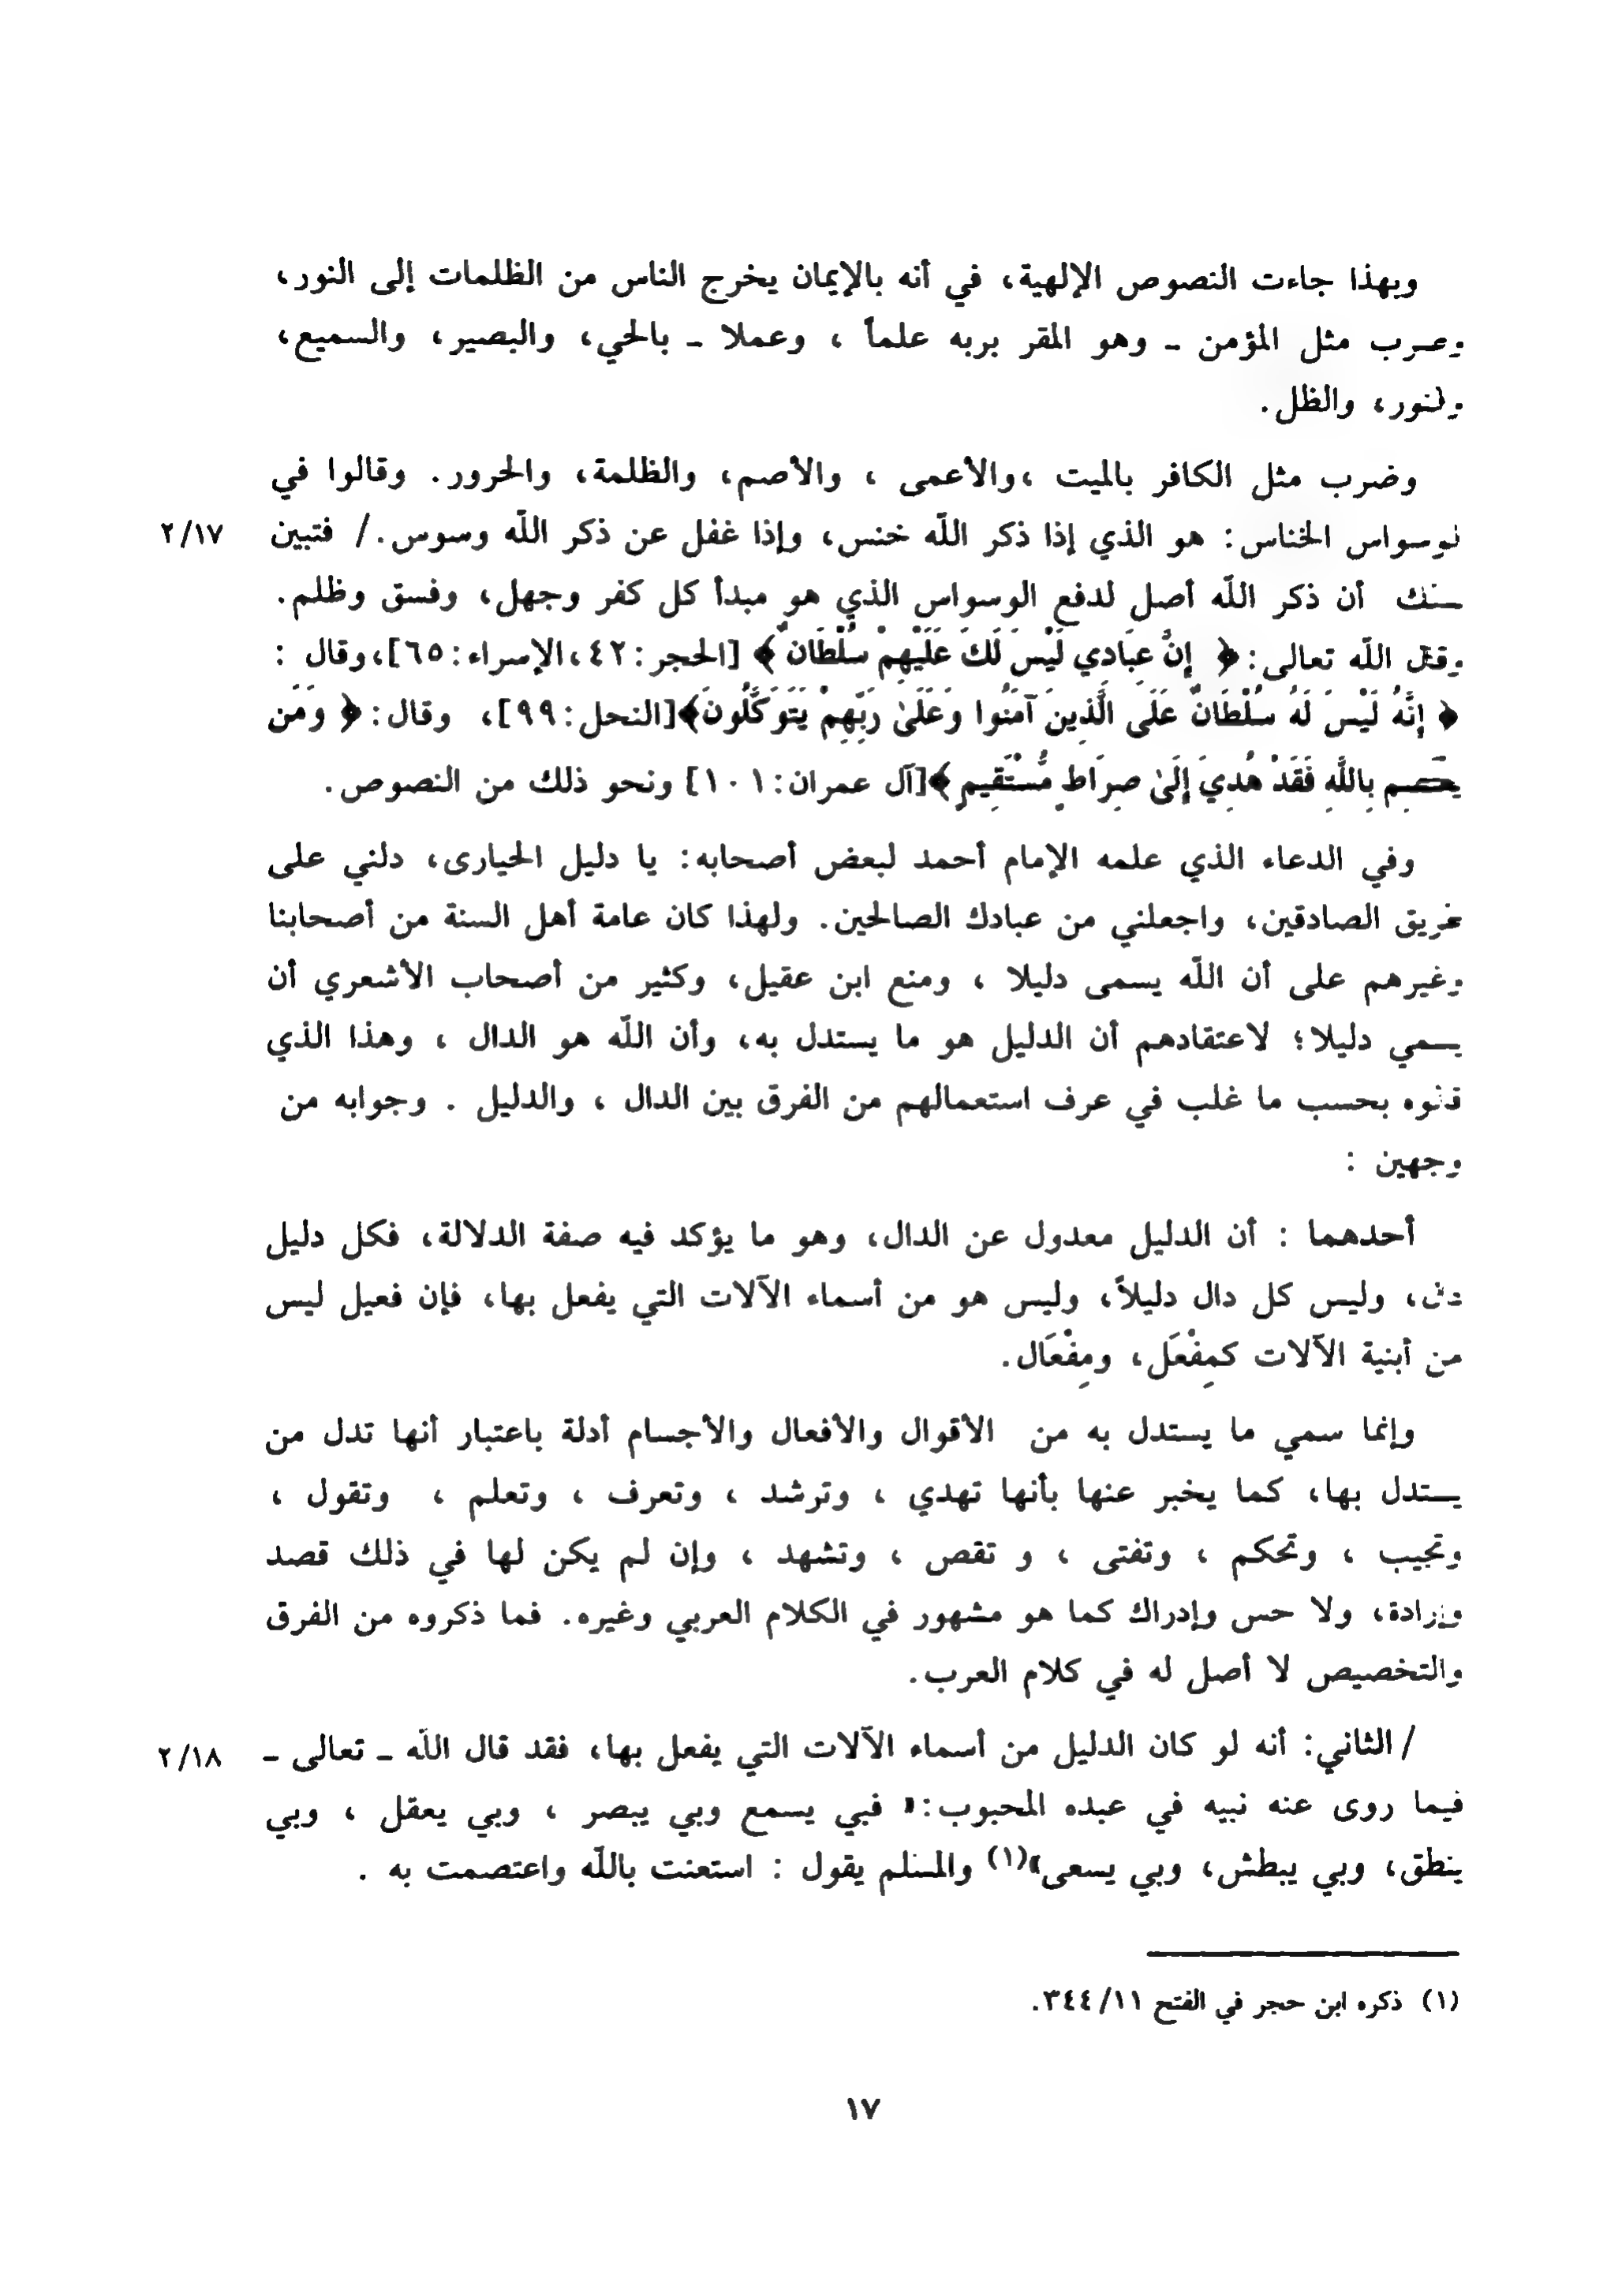 وبهذا جاءت النصوص الإلهية، في أنه بالإيمان يخرج الناس من الظلمات إلى النور،
وضرب مثل المؤمن ـ وهو المقر بربه علماً ، وعملا ـ بالحي، والبصير، والسميع،
والنور، والظل.
وضرب مثل الكافر بالميت ،والأعمى ، والأصم، والظلمة، والحرور. وقالوا في
الوسواس الخناس: هو الذي إذا ذكر اللّه خنس، وإذا غفل عن ذكر اللّه وسوس./ فتبين ٢/١٧
بذلك أن ذكر اللّه أصل لدفع الوسواس الذي هو مبدأ كل كفر وجهل، وفسق وظلم.
وقال اللّه تعالى:﴿ إِنَّ عِبَادِي لَيْسَ لَكَ عَلَيْهِمْ سُلْطَانٌ ﴾ [الحجر:٤٢،الإسراء:٦٥]،وقال :
﴿ إِنَّهُ لَيْسَ لَهُ سُلْطَانٌ عَلَى الَّذِينَ آمَنُوا وَعَلَىٰ رَبِّهِمْ يَتَوَكَّلُونَ﴾[النحل:٩٩]، وقال:﴿ وَمَن
يَعْتَصِم بِاللَّهِ فَقَدْ هُدِيَ إِلَىٰ صِرَاطٍ مُّسْتَقِيمٍ ﴾[آل عمران:١٠١] ونحو ذلك من النصوص.
وفي الدعاء الذي علمه الإمام أحمد لبعض أصحابه: يا دليل الحيارى، دلني على
طريق الصادقين، واجعلني من عبادك الصالحين. ولهذا كان عامة أهل السنة من أصحابنا
وغيرهم على أن اللّه يسمى دليلا ، ومنع ابن عقيل، وكثير من أصحاب الأشعري أن
يسمي دليلا؛ لاعتقادهم أن الدليل هو ما يستدل به، وأن اللّه هو الدال ، وهذا الذي
قالوه بحسب ما غلب في عرف استعمالهم من الفرق بين الدال ، والدليل . وجوابه من
وجهين :
أحدهما : أن الدليل معدول عن الدال، وهو ما يؤكد فيه صفة الدلالة، فكل دليل
دال، وليس كل دال دليلاً، وليس هو من أسماء الآلات التي يفعل بها، فإن فعيل ليس
من أبنية الآلات كمِفْعَل، ومِفْعَال.
وإنما سمي ما يستدل به من الأقوال والأفعال والأجسام أدلة باعتبار أنها تدل من
يستدل بها، كما يخبر عنها بأنها تهدي ، وترشد ، وتعرف ، وتعلم ، وتقول ،
وتجيب ، وتحكم ، وتفتى ، و تقص ، وتشهد ، وإن لم يكن لها في ذلك قصد
وإرادة، ولا حس وإدراك كما هو مشهور في الكلام العربي وغيره. فما ذكروه من الفرق
والتخصيص لا أصل له في كلام العرب.
/ الثاني: أنه لو كان الدليل من أسماء الآلات التي يفعل بها، فقد قال اللّه ـ تعالى ـ ٢/١٨
فيما روى عنه نبيه في عبده المحبوب:« فبي يسمع وبي يبصر ، وبي يعقل ، وبي
ينطق، وبي يبطش، وبي يسعى»(١) والمسلم يقول : استعنت باللّه واعتصمت به .
(١) ذكره ابن حجر في الفتح ١١/ ٣٤٤.
١٧